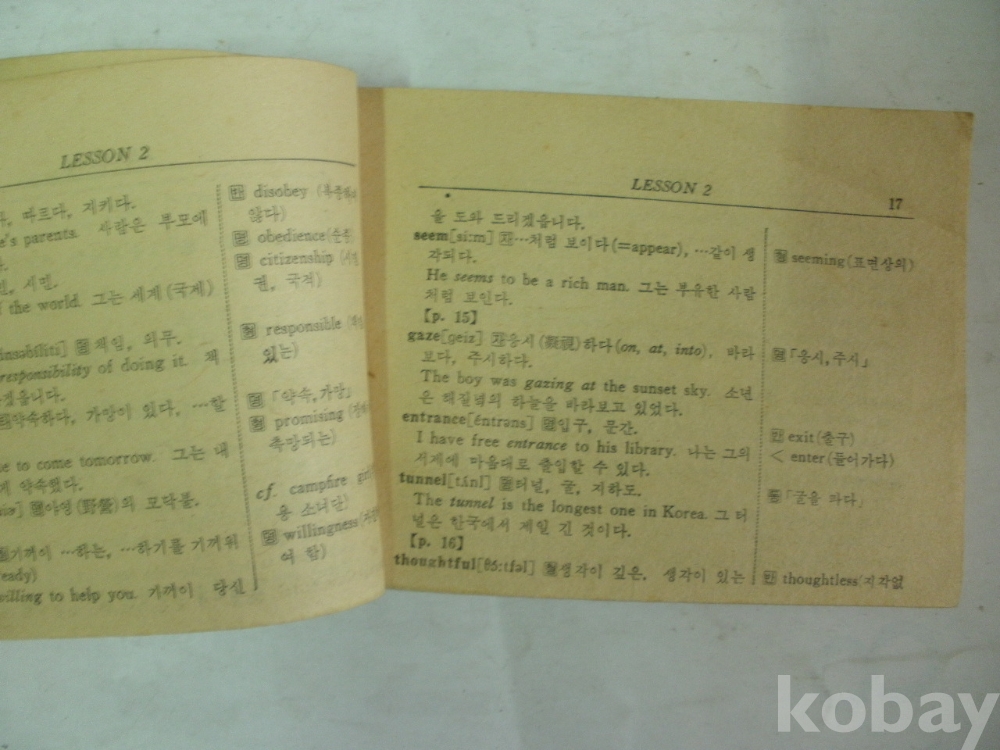 LESSON 2
따르다, 지키다.
's parents. 사람은 부모에
, 시민.
the world. 그는 세계(국제)
책임, 의무.
responsibility of doing it. 책
약속하다, 가망이 있다, …할
to come tomorrow. 그는 내
약속했다.
야영(野營)의 모닥불.
기꺼이 …하는, …하기를 기꺼워
willing to help you. 기꺼이 당신
disobey
않다)
obedience
citizenship
권, 국적)
responsible
있는)
「약속, 가망」
promising
촉망되는)
cf. campfire
용 소년단)
willingness
여 함)
LESSON 2
17
을 도와 드리겠읍니다.
seem[si:m] 자…처럼 보이다(=appear), …같이 생
각되다.
He seems to be a rich man. 그는 부유한 사람
처럼 보인다.
【p. 15】
gaze[geiz] 자응시(凝視)하다(on, at, into), 바라
보다, 주시하다.
The boy was gazing at the sunset sky. 소년
은 해질녘의 하늘을 바라보고 있었다.
entrance[éntrəns] 명입구, 문간.
I have free entrance to his library. 나는 그의
서재에 마음대로 출입할 수 있다.
tunnel[tʌ́nl] 명터널, 굴, 지하도.
The tunnel is the longest one in Korea. 그 터
널은 한국에서 제일 긴 것이다.
【p. 16】
thoughtful[θɔ́:tfəl] 형생각이 깊은, 생각이 있는
형 seeming(표면상의)
명「응시, 주시」
반 exit(출구)
< enter(들어가다)
동「굴을 파다」
반 thoughtless(지각없
kobay